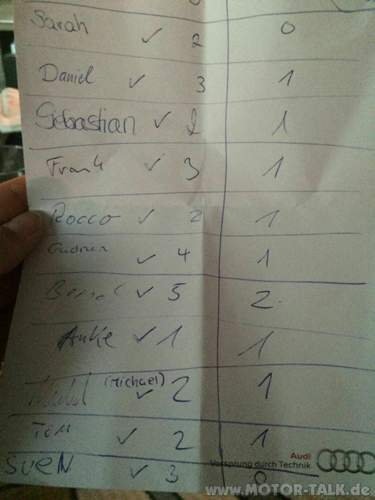 Sarah ✓ 2 0
Daniel ✓ 3 1
Sebastian ✓ 2 1
Frank ✓ 3 1
Rocco ✓ 2 1
Gudrun ✓ 4 1
✓ 5 2
Anke ✓ 1 1
(Michael) ✓ 2 1
Tom ✓ 2 1
Audi
Vorsprung durch Technik
SVEN ✓ 3 0
www.MOTOR-TALK.de